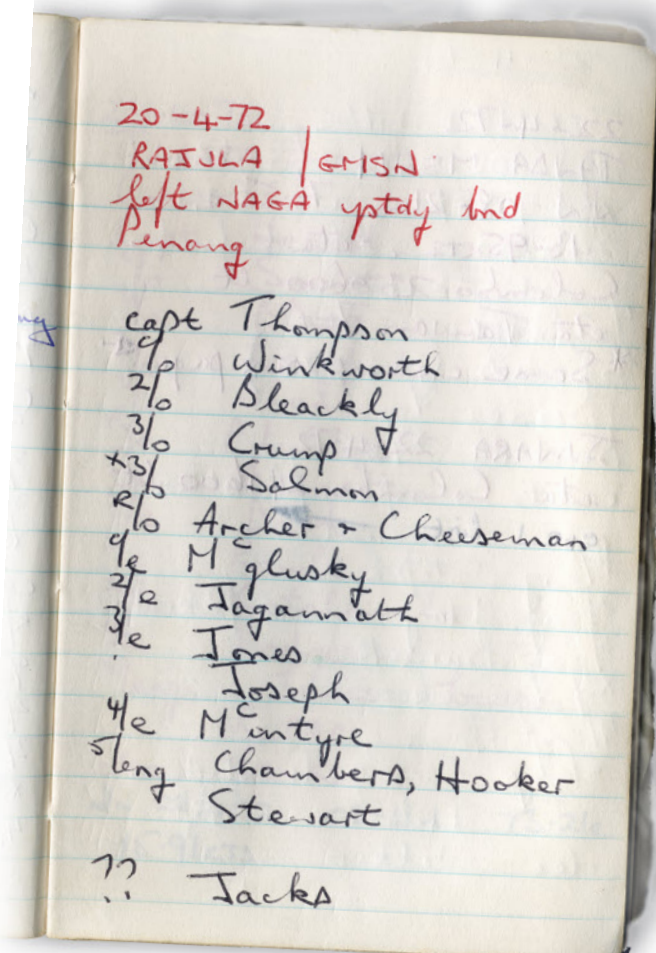 20-4-72
RAJULA / GMSN
left NAGA yptdy bnd
Penang
capt Thompson
c/o Winkworth
2/o Bleackly
3/o Crump
x3/o Salmon
R/o Archer + Cheeseman
c/e McGlusky
2/e Jagannath
3/e Jones
Joseph
4/e McIntyre
5/eng Chambers, Hooker
Stewart
?? Jacks